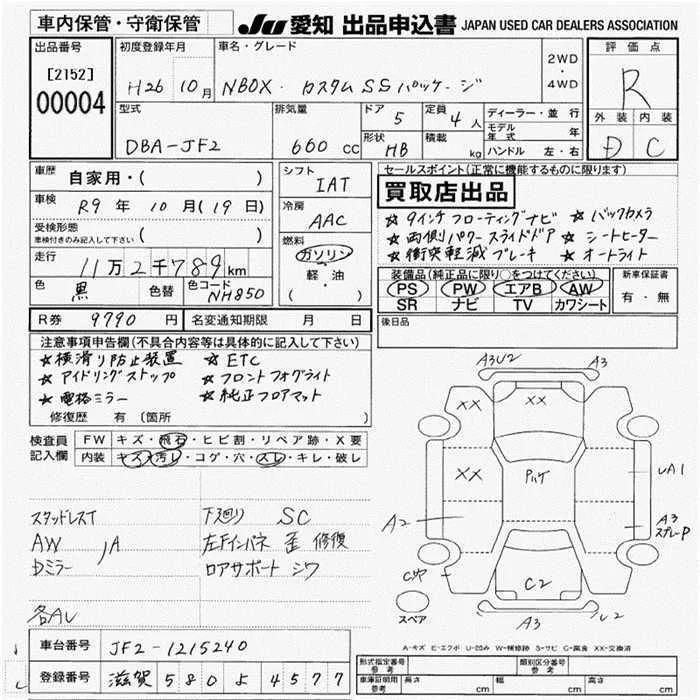 車内保管・守衛保管
JU 愛知 出品申込書 JAPAN USED CAR DEALERS ASSOCIATION
出品番号 初度登録年月 車名・グレード 2WD・4WD 評価点
[2152] H26 10月 NBOX・カスタム SSパッケージ R
00004
型式 排気量 ドア 5 定員 4人 ディーラー・並行 外装 内装
DBA-JF2 660 cc 形状 HB 積載 kg モデル年式 年 D C
ハンドル 左・右
車歴 自家用・( ) シフト IAT セールスポイント(正常に機能するものに限ります)
車検 R9年 10月(19日) 冷房 AAC 買取店出品
受検形態 車検付きのみ記入して下さい ( )
☆9インチフローティングナビ ☆バックカメラ
☆両側パワースライドドア ☆シートヒーター
☆衝突軽減ブレーキ ☆オートライト
走行 11万2千789km 燃料 ガソリン・軽・油 ( )
色 黒 色替 色コード NH850
装備品(純正品に限り○をつけてください) 新車保証書
PS PW エアB AW 有・無
SR ナビ TV カワシート
R券 9790円 名変通知期限 月 日 後日品
注意事項申告欄(不具合内容等は具体的に記入して下さい)
☆横滑り防止装置 ☆ETC
☆アイドリングストップ ☆フロントフォグライト
☆電格ミラー ☆純正フロアマット
修復歴 有〔箇所 〕
検査員記入欄 FW キズ・飛石・ヒビ割・リペア跡・X要
内装 キズ・汚レ・コゲ・穴・スレ・キレ・破レ
スタッドレスT 下廻り SC
AW 〃A 左Fインパネ 歪 修復
Dミラー ロアサポート シワ
各AU
A3U2 A3
XX XX
XX Pハゲ UA1
A2 A3 スプレーP
C2
スペア A3 U2
A-キズ E-エクボ U-凹み W-補修跡 S-サビ C-腐食 XX-交換済
車台番号 JF2-1215240
登録番号 滋賀 580 よ 4577
形式指定番号 参考 類別区分番号 参考
車庫証明用 参考 長さ cm 幅 cm 高さ cm